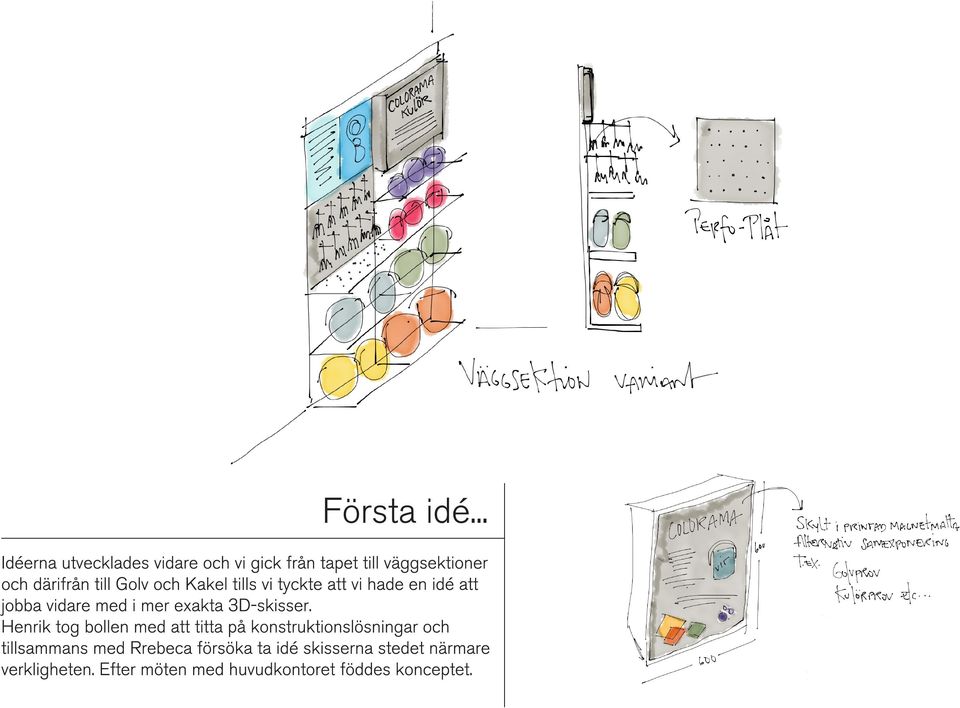 COLORAMA
KULÖR
PERFO-PLÅT
VÄGGSEKTION VARIANT
Första idé...
Idéerna utvecklades vidare och vi gick från tapet till väggsektioner
och därifrån till Golv och Kakel tills vi tyckte att vi hade en idé att
jobba vidare med i mer exakta 3D-skisser.
Henrik tog bollen med att titta på konstruktionslösningar och
tillsammans med Rrebeca försöka ta idé skisserna stedet närmare
verkligheten. Efter möten med huvudkontoret föddes konceptet.
COLORAMA
VIT
600
600
SKYLT I PRINTAD MAGNETMATTA
ALTERNATIV SAMEXPONERING
T.EX. GOLVPROV
KULÖRPROV etc...